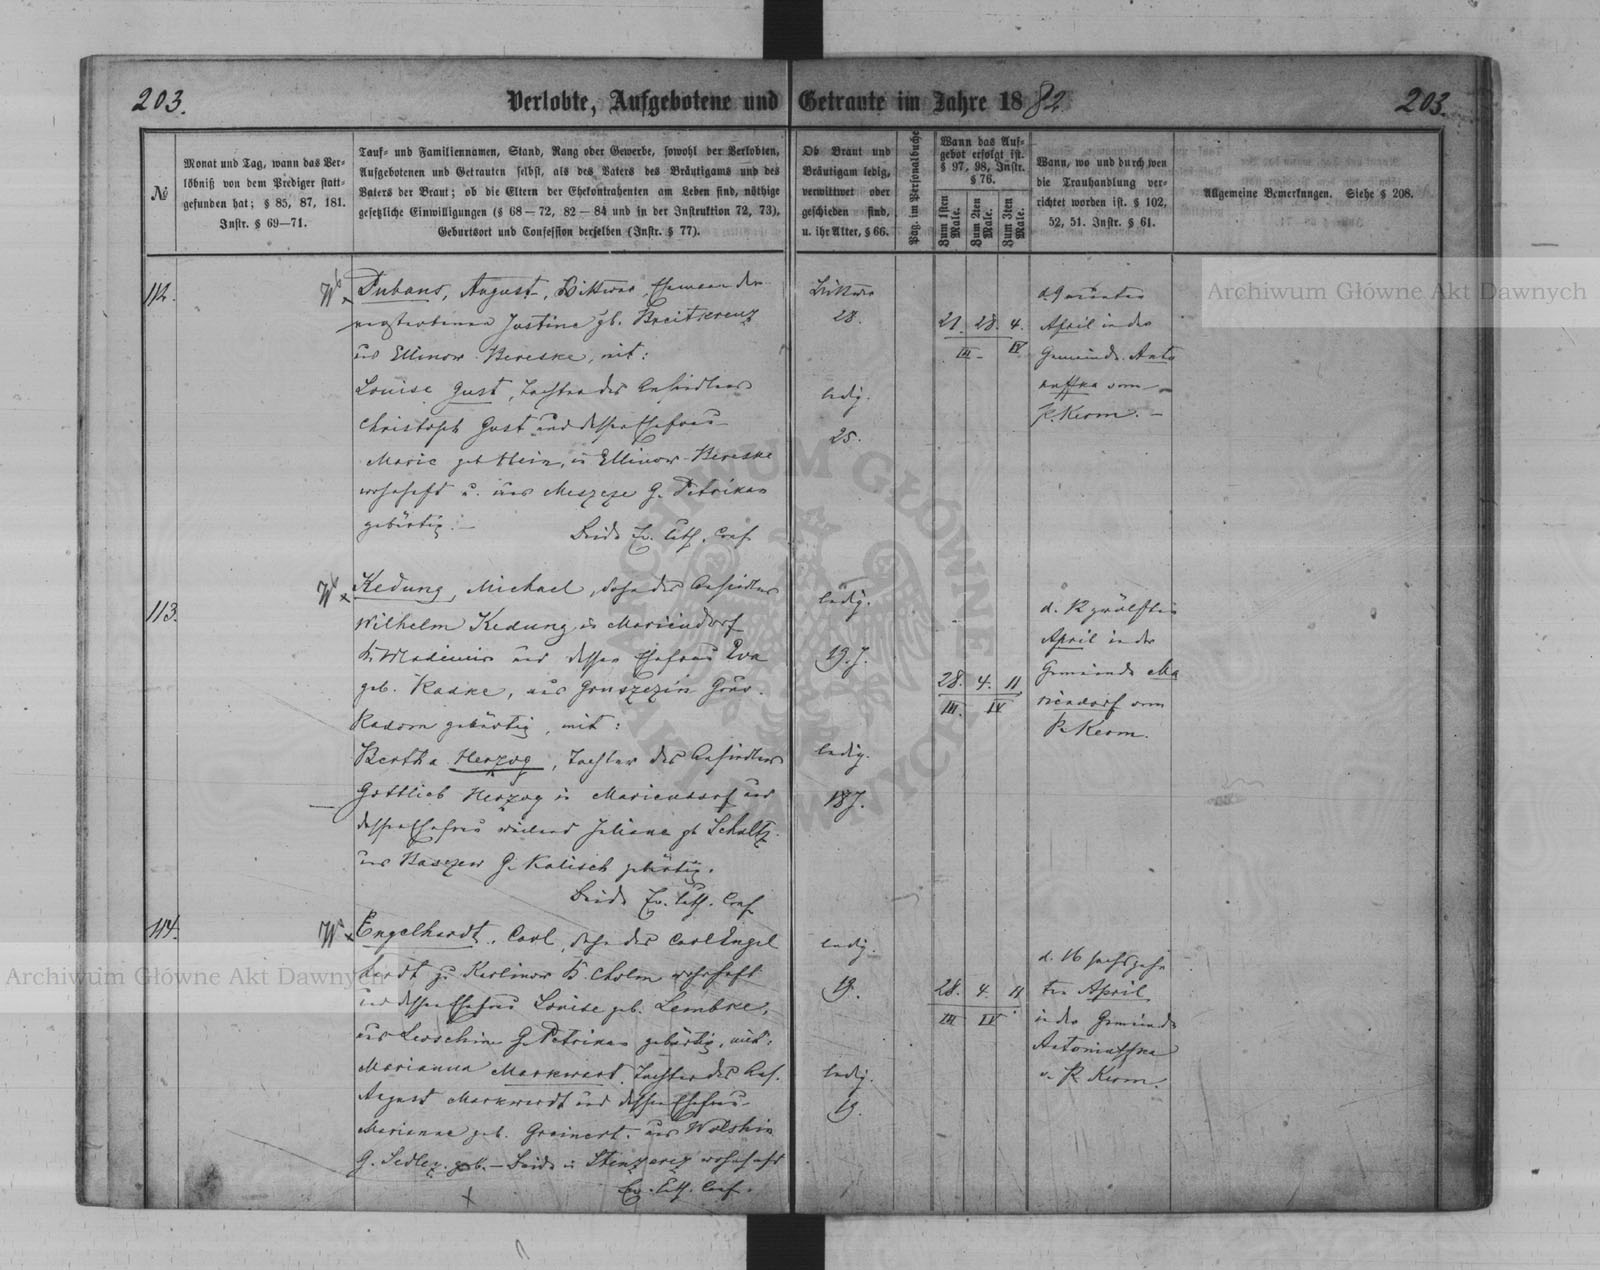 203.
Verlobte, Aufgebotene und Getraute im Jahre 1882
203.
№
Monat und Tag, wann das Ver-
löbniß von dem Prediger statt-
gefunden hat; § 85, 87, 181.
Instr. § 69—71.
Tauf- und Familiennamen, Stand, Rang oder Gewerbe, sowohl der Verlobten,
Aufgebotenen und Getrauten selbst, als des Vaters des Bräutigams und des
Vaters der Braut; ob die Eltern der Ehekontrahenten am Leben sind, nöthige
gesetzliche Einwilligungen (§ 68—72, 82—84 und in der Instruktion 72, 73),
Geburtsort und Confession derselben (Instr. § 77).
Ob Braut und
Bräutigam ledig,
verwittwet oder
geschieden sind,
u. ihr Alter, § 66.
Pag. im Personalbuche
Wann das Auf-
gebot erfolgt ist.
§ 97, 98, Instr.
§ 76.
Zum 1sten Male.
Zum 2ten Male.
Zum 3ten Male.
Wann, wo und durch wen
die Trauhandlung ver-
richtet worden ist. § 102,
52, 51. Instr. § 61.
Allgemeine Bemerkungen. Siehe § 208.
112.
Dubans, August, Wittwer, Ehemann der
verstorbenen Justine gb. Breitkreuz
aus Ellinow-Bereske, mit:
Louise Gust, Tochter des Ansiedlers
Christoph Gust und dessen Ehefrau
Marie geb. Hein, in Ellinow-Bereske
wohnhaft u. aus Meszeze G. Petrikau
gebürtig.—
Beide Ev. Luth. Conf.
Wittwer
28.
ledig.
25.
21. 28. 4.
III IV
April in der
Gemeinde Anto
nuffka vom
P. Kerm.—
113.
Kedung, Michael, Sohn des Ansiedlers
Wilhelm Kedung in Mariendorf
K. Wladimir und dessen Ehefrau Eva
geb. Radke, aus Gruszczin Gouv.
Radom gebürtig, mit:
Bertha Herzog, Tochter des Ansiedlers
Gottlieb Herzog in Mariendorf und
dessen Ehefrau weiland Juliane gb. Schultz
aus G. Kalisch gebürtig.
Beide Ev. Luth. Conf.
ledig.
19. J.
ledig.
18 J.
28. 4. 11
III. IV
d. 12 zwölften
April in der
Gemeinde Ma
riendorf vom
P. Kerm.
114.
Engelhardt, Carl, Sohn des Carl Engel
hardt zu Karlinow K. Cholm wohnhaft
und dessen Ehefrau Louise geb. Lembke,
aus Leoschin G. Petrikau gebürtig, mit:
Marianna Markwart, Tochter des Ans.
August Markwardt und dessen Ehefrau
Marianne geb. Greinert. aus Wolshin
G. Sedlez. geb.— Beide in wohnhaft
Ev. Luth. Conf.
ledig.
19.
ledig.
19.
28. 4. 11
III IV
d. 16 sechszehn
ten April
in der Gemeinde
Antoniuffka
v. P. Kerm.
Archiwum Główne Akt Dawnych
Archiwum Główne Akt Dawnych
ARCHIWUM GŁÓWNE AKT DAWNYCH